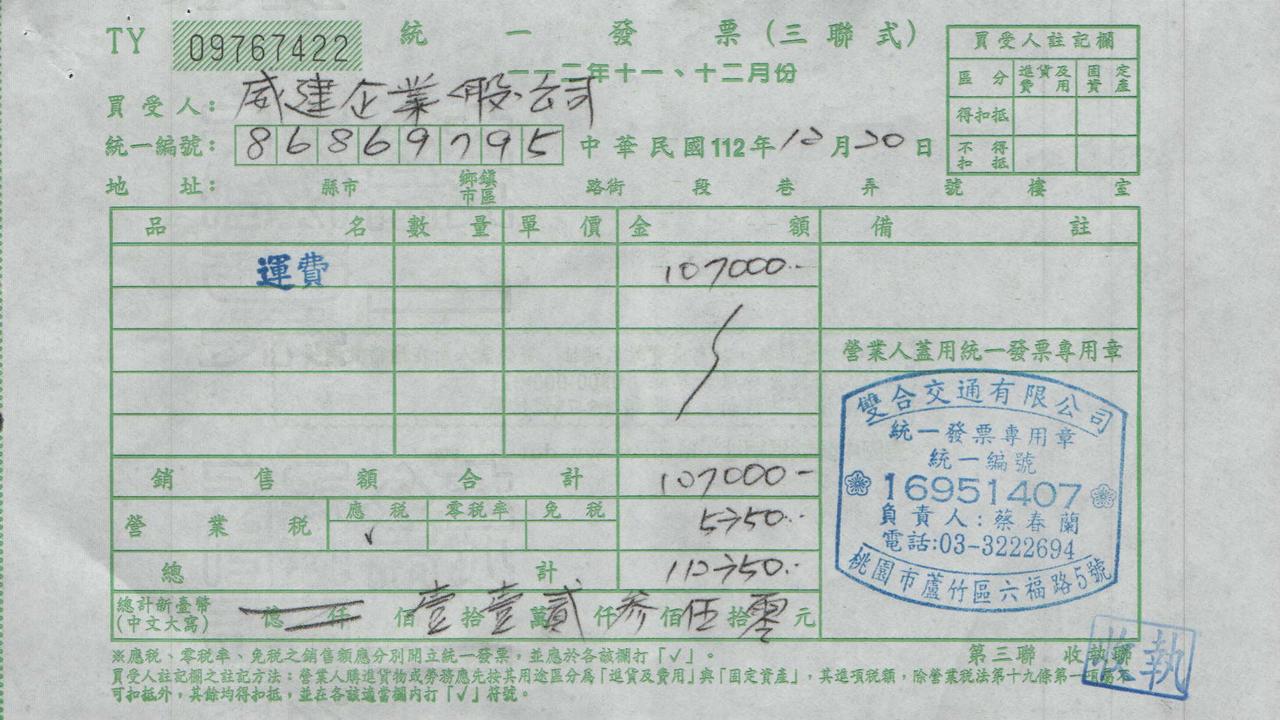 TY 09767422 統一發票(三聯式)
一一二年十一、十二月份
買受人註記欄
區分 進貨及費用 固定資產
得扣抵
不得扣抵
買受人:威建企業股公司
統一編號:86869795 中華民國112年12月20日
地址: 縣市 鄉鎮市區 路街 段 巷 弄 號 樓 室
品名 數量 單價 金額 備註
運費 107000..
營業人蓋用統一發票專用章
銷售額合計 107000-
營業稅 應稅 零稅率 免稅
✓ 5350..
總計 112350..
總計新臺幣
(中文大寫) 億 仟 佰壹拾壹萬貳仟參佰伍拾零元
雙合交通有限公司
統一發票專用章
統一編號
16951407
負責人:蔡春蘭
電話:03-3222694
桃園市蘆竹區六福路5號
※應稅、零稅率、免稅之銷售額應分別開立統一發票,並應於各該欄打「✓」。
第三聯 收執聯
收執
買受人註記欄之註記方法:營業人購進貨物或勞務應先按其用途區分為「進貨及費用」與「固定資產」,其進項稅額,除營業稅法第十九條第一項屬不
可扣抵外,其餘均得扣抵,並在各該適當欄內打「✓」符號。